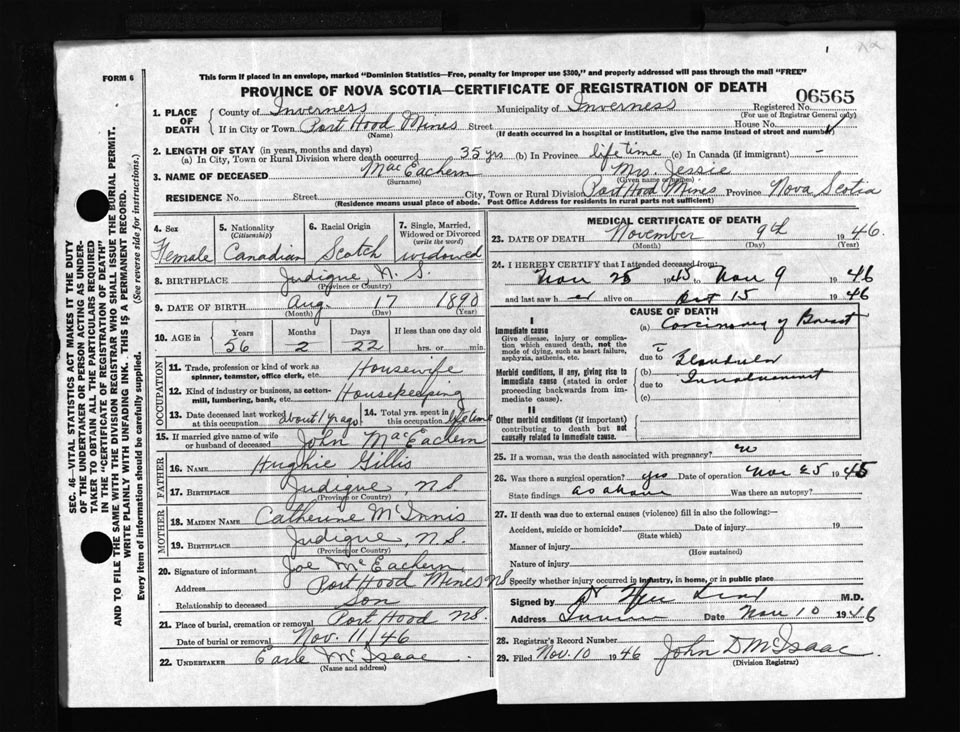 FORM 6
This form if placed in an envelope, marked "Dominion Statistics—Free, penalty for improper use $300," and properly addressed will pass through the mail "FREE"
PROVINCE OF NOVA SCOTIA—CERTIFICATE OF REGISTRATION OF DEATH
06565
1. PLACE OF DEATH
County of Inverness Municipality of Inverness Registered No.
(For use of Registrar General only)
If in City or Town Port Hood Mines Street House No.
(Name) (If death occurred in a hospital or institution, give the name instead of street and number)
2. LENGTH OF STAY (in years, months and days)
(a) In City, Town or Rural Division where death occurred 35 yrs (b) In Province life time (c) In Canada (if immigrant) –
3. NAME OF DECEASED MacEachern Mrs. Jessie
(Surname) (Given name or names)
RESIDENCE No. Street City, Town or Rural Division Port Hood Mines Province Nova Scotia
(Residence means usual place of abode. Post Office Address for residents in rural parts not sufficient)
4. Sex Female
5. Nationality (Citizenship) Canadian
6. Racial Origin Scotch
7. Single, Married, Widowed or Divorced (write the word) widowed
8. BIRTHPLACE Judique N. S.
(Province or Country)
9. DATE OF BIRTH Aug. 17 1890
(Month) (Day) (Year)
10. AGE in Years 56 Months 2 Days 22 If less than one day old hrs. or min.
OCCUPATION
11. Trade, profession or kind of work as spinner, teamster, office clerk, etc. Housewife
12. Kind of industry or business, as cotton-mill, lumbering, bank, etc. Housekeeping
13. Date deceased last worked at this occupation about 1 yr ago
14. Total yrs. spent in this occupation lifetime
15. If married give name of wife or husband of deceased John MacEachern
FATHER
16. NAME Hughie Gillis
17. BIRTHPLACE Judique, N.S.
(Province or Country)
MOTHER
18. MAIDEN NAME Catherine McInnis
19. BIRTHPLACE Judique, N.S.
(Province or Country)
20. Signature of informant Joe McEachern
Address Port Hood Mines NS
Relationship to deceased Son
21. Place of burial, cremation or removal Port Hood NS.
Date of burial or removal Nov. 11/46
22. UNDERTAKER Earle McIsaac
(Name and address)
MEDICAL CERTIFICATE OF DEATH
23. DATE OF DEATH November 9th 1946.
(Month) (Day) (Year)
24. I HEREBY CERTIFY that I attended deceased from:
Nov 25 1945 to Nov 9 1946
and last saw h er alive on Oct 15 1946
CAUSE OF DEATH
I
Immediate cause
Give disease, injury or complication which caused death, not the mode of dying, such as heart failure, asphyxia, asthenia, etc.
(a) Carcinoma of Breast
due to Glandular
Morbid conditions, if any, giving rise to immediate cause (stated in order proceeding backwards from immediate cause).
(b) Involvement
due to
(c)
II
Other morbid conditions (if important) contributing to death but not causally related to immediate cause.
25. If a woman, was the death associated with pregnancy?
26. Was there a surgical operation? yes Date of operation Nov 25 1945
State findings as above Was there an autopsy?
27. If death was due to external causes (violence) fill in also the following:—
Accident, suicide or homicide? Date of injury 19
(State which)
Manner of injury
(How sustained)
Nature of injury
Specify whether injury occurred in industry, in home, or in public place
Signed by M.D.
Address Date Nov 10 1946
28. Registrar's Record Number
29. Filed Nov. 10 1946 John D McIsaac
(Division Registrar)
SEC. 46—VITAL STATISTICS ACT MAKES IT THE DUTY
OF THE UNDERTAKER OR PERSON ACTING AS UNDER-
TAKER TO OBTAIN ALL THE PARTICULARS REQUIRED
IN THE "CERTIFICATE OF REGISTRATION OF DEATH"
AND TO FILE THE SAME WITH THE DIVISION REGISTRAR WHO SHALL ISSUE THE BURIAL PERMIT.
WRITE PLAINLY WITH UNFADING INK. THIS IS A PERMANENT RECORD.
Every item of information should be carefully supplied. (See reverse side for instructions.)